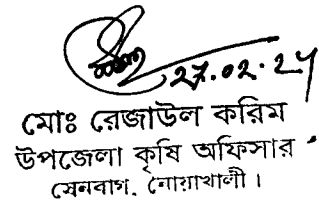 27.02.24
মোঃ রেজাউল করিম
উপজেলা কৃষি অফিসার
সেনবাগ, নোয়াখালী।